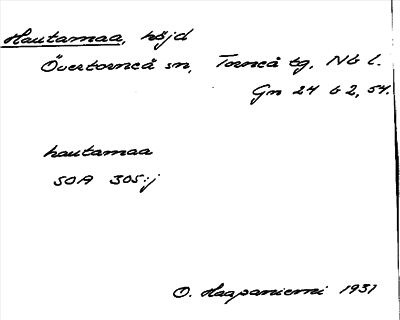 Hautamaa, höjd
Övertorneå sn, Torneå tg, Nb l.
Gn 24 b 2, 54.
hautamaa
SOA 305:j
O. Haapaniemi 1931